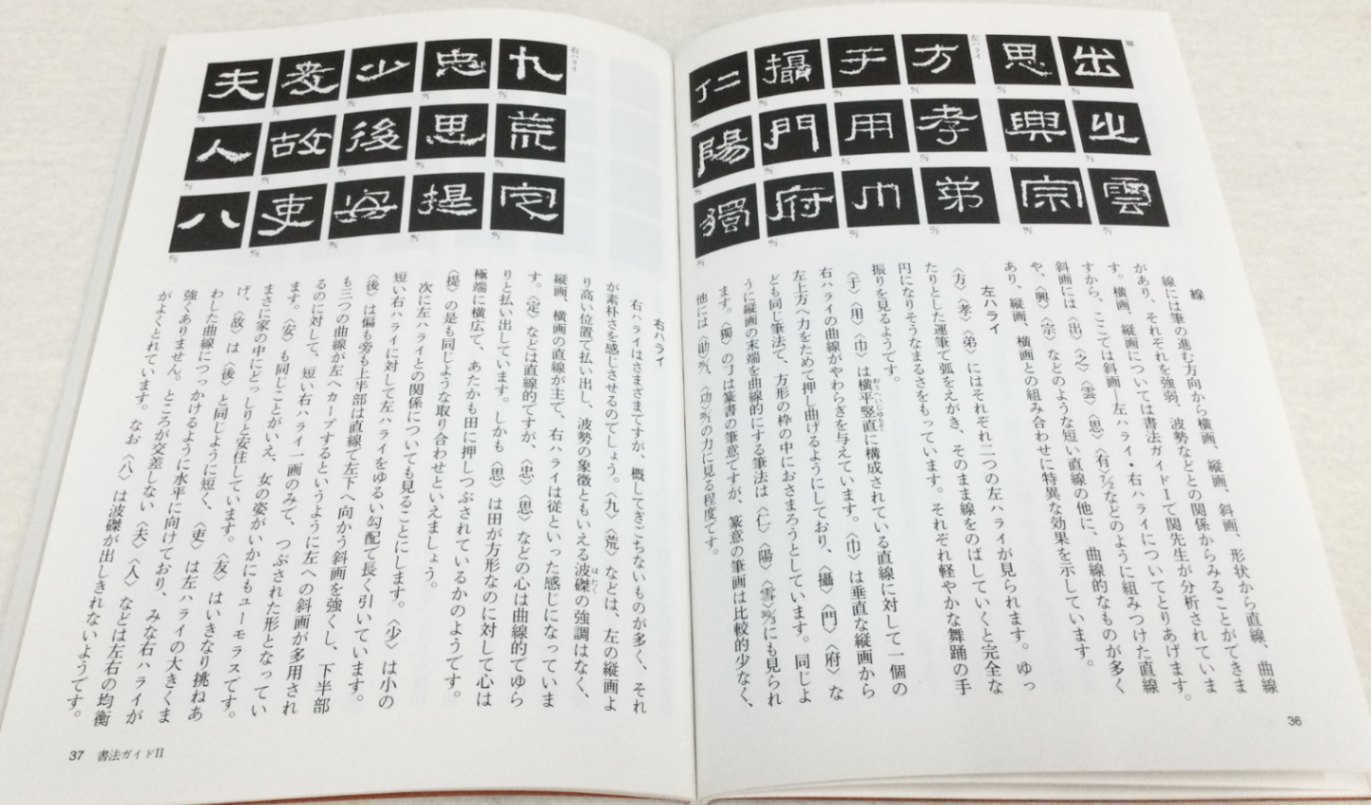 線
出
之
雲
思
興
宗
左ハライ
方
孝
弟
于
用
巾
攝
門
府
仁
陽
獨
線
線には筆の進む方向から横画、縦画、斜画、形状から直線、曲線
があり、それぞれを強弱、波勢などとの関係からみることができま
す。横画、縦画については書法ガイドⅠで関先生が分析されていま
すから、ここでは斜画―左ハライ・右ハライについてとりあげます。
斜画には〈出〉〈之〉〈雲〉〈思〉〈有〉などのように組みつけた直線
や、〈興〉〈宗〉などのような短い直線の他に、曲線的なものが多く
あり、縦画、横画との組み合わせに特異な効果を示しています。
左ハライ
〈方〉〈孝〉〈弟〉にはそれぞれ二つの左ハライが見られます。ゆっ
たりとした運筆で弧をえがき、そのまま線をのばしていくと完全な
円になりそうなまるさをもっています。それぞれ軽やかな舞踊の手
振りを見るようです。
〈于〉〈用〉〈巾〉は横平竪直に構成されている直線に対して一個の
右ハライの曲線がやわらぎを与えています。〈巾〉は垂直な縦画から
左上方へ力をためて押し曲げるようにしており、〈攝〉〈門〉〈府〉な
ども同じ筆法で、方形の枠の中におさまろうとしています。同じよ
うに縦画の末端を曲線的にする筆法は〈仁〉〈陽〉〈雪〉にも見られ
ます。〈獨〉の丁は篆書の筆意ですが、篆意の筆画は比較的少なく、
他には〈助〉、〈功〉の力に見る程度です。
36
右ハライ
九
荒
定
忠
思
提
少
後
安
友
故
吏
夫
人
八
右ハライ
右ハライはさまざまですが、概してきごちないものが多く、それ
が素朴さを感じさせるのでしょう。〈九〉〈荒〉などは、左の縦画よ
り高い位置で払い出し、波勢の象徴ともいえる波磔の強調はなく、
縦画、横画の直線が主で、右ハライは従といった感じになっていま
す。〈定〉などは直線的ですが、〈忠〉〈思〉などの心は曲線的でゆら
りと払い出しています。しかも〈思〉は田が方形なのに対して心は
極端に横広で、あたかも田に押しつぶされているかのようです。
〈提〉の是も同じような取り合わせといえましょう。
次に左ハライとの関係についても見ることにします。〈少〉は小の
短い右ハライに対して左ハライをゆるい勾配で長く引いています。
〈後〉は偏も旁も上半部は直線で左下へ向かう斜画を強くし、下半部
も三つの曲線が左へカーブするというように左への斜画が多用され
るのに対して、短い右ハライ一画のみで、つぶされた形となってい
ます。〈安〉も同じことがいえ、女の姿がいかにもユーモラスです。
まさに家の中にどっしりと安住しています。〈友〉はいきなり挑ねあ
げ、〈故〉は〈後〉と同じように短く、〈吏〉は左ハライの大きくま
わした曲線につっかけるように水平に向けており、みな右ハライが
強くありません。ところが交差しない〈夫〉〈人〉などは左右の均衡
がよくとれています。なお〈八〉は波磔が出しきれないようです。
37 書法ガイドⅡ